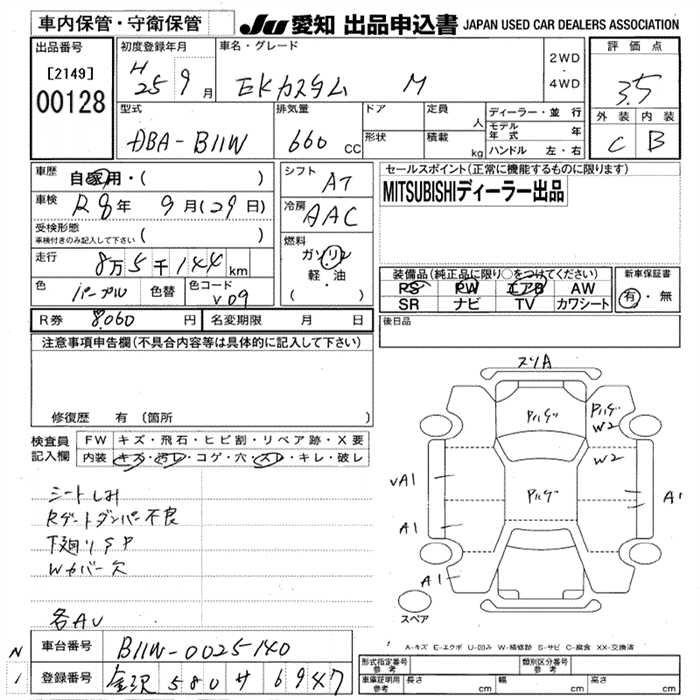 車内保管・守衛保管
JU 愛知 出品申込書 JAPAN USED CAR DEALERS ASSOCIATION
出品番号
[2149]
00128
初度登録年月
H25 9月
車名・グレード
EKカスタム M
2WD
・
4WD
評価点
3.5
外装 内装
C B
型式
DBA-B11W
排気量
660 cc
ドア
形状
定員 人
積載 kg
ディーラー・並行
モデル年式 年
ハンドル 左・右
車歴
自家用・( )
車検
R8年 9月(29日)
受検形態
車検付きのみ記入して下さい ( )
走行
8万5千144km
色
パープル
色替
色コード
V09
シフト
AT
冷房
AAC
燃料
ガソリン
軽・油
( )
セールスポイント(正常に機能するものに限ります)
MITSUBISHIディーラー出品
装備品(純正品に限り○をつけてください)
PS PW エアB AW
SR ナビ TV カワシート
新車保証書
有・無
R券 8,060円
名変期限 月 日
後日品
注意事項申告欄(不具合内容等は具体的に記入して下さい)
修復歴 有 (箇所 )
検査員記入欄
FW キズ・飛石・ヒビ割・リペア跡・X要
内装 キズ・汚レ・コゲ・穴・スレ・キレ・破レ
シートしみ
Rゲートダンパー不良
下廻りSP
Wカバー欠
各AU
スリA
Pルゲ
Pルゲ
W2
W2
VA1
Pルゲ
A1
A1
A1
スペア
A-キズ E-エクボ U-凹み W-補修跡 S-サビ C-腐食 XX-交換済
N
1
車台番号 B11W-0025140
登録番号 金沢 580 サ 6947
形式指定番号
参考
類別区分番号
参考
車庫証明用
参考
長さ cm
幅 cm
高さ cm